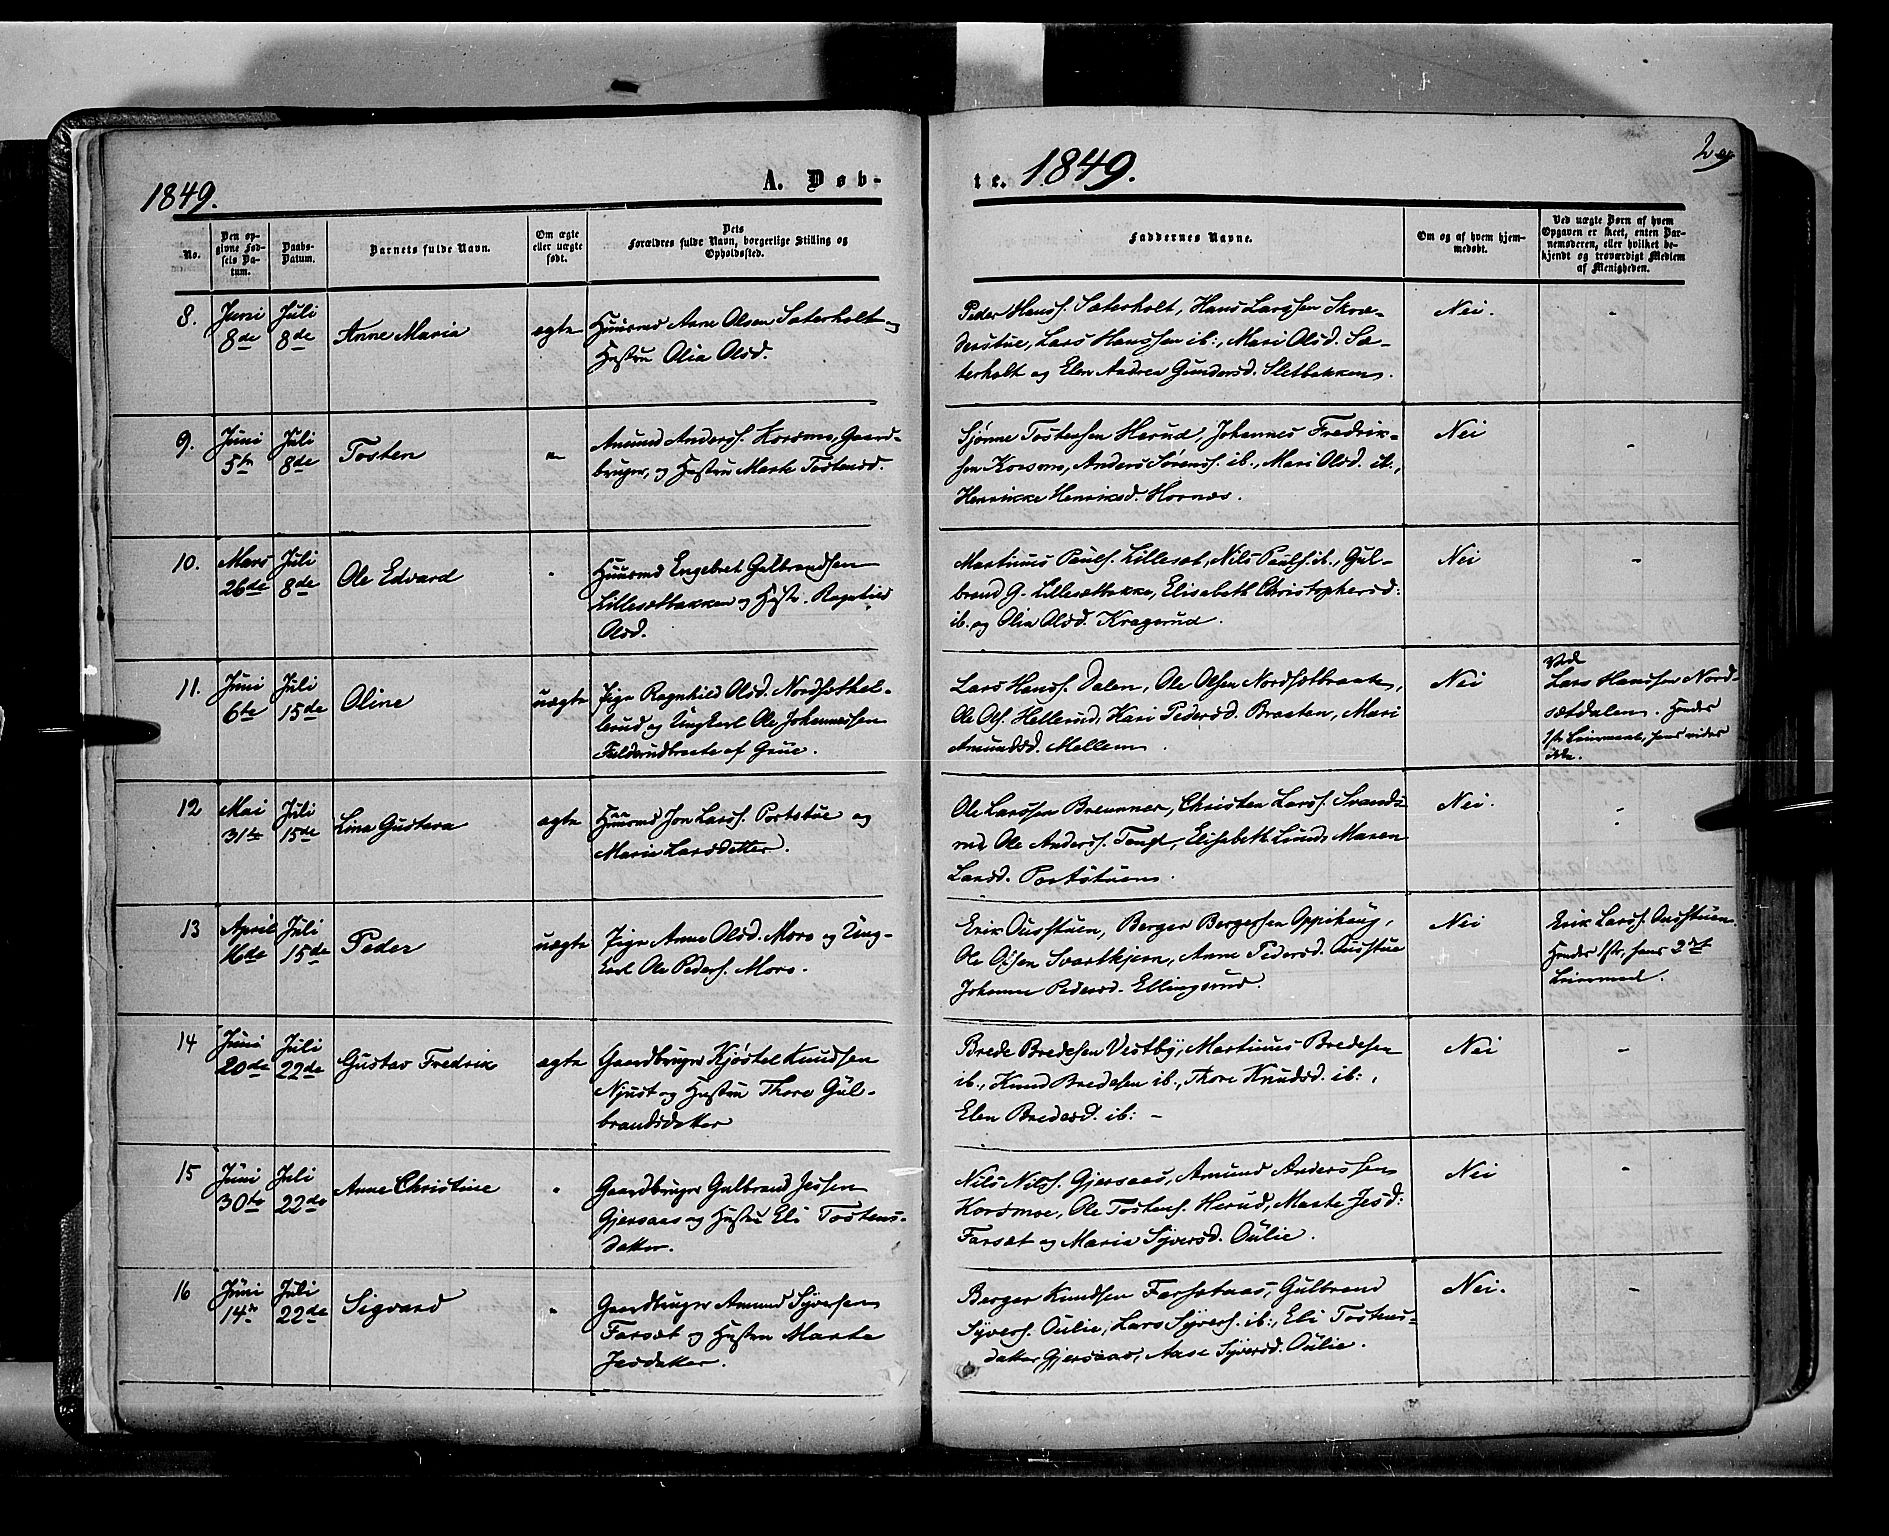 1849.
A. Døb-
te. 1849.
2
No.
Den op-
givne Fød-
sels Da-
tum.
Daabs-
Datum.
Barnets fulde Navn.
Om ægte
eller uægte
født.
Dets
Forældres fulde Navn, borgerlige Stilling og
Opholdssted.
Faddernes Navne.
Om og af hvem hjem-
medøbt.
Ved uægte Børn af hvem
Opgaven er skeet, enten Bar-
nemoderen, eller hvilket be-
kjendt og troværdigt Medlem
af Menigheden.
8.
Juni
8de
Juli
8de
Anne Maria
ægte
Huusmd Arne Olsen Sæterholt og
Hustru Olia Olsd.
Peder Hanss. Sæterholt, Hans Larssen Skræ-
derstue, Lars Hanssen ib:, Mari Olsd. Sæ-
terholt og Elen Andrea Gundersd. Sletbakken.
Nei.
-
9.
Juni
5te
Juli
8de
Tosten
Amund Anderss. Korsmo, Gaard-
bruger, og Hustru Marte Tostensd.
Sjønne Tostensen Herud, Johannes Fredrik-
sen Korsmo, Anders Sørenss. ib., Mari Olsd. ib.,
Henrikke Henriksd. Hornæs.
Nei
-
10.
Mars
26de
Juli
8de
Ole Edvard
Huusmd Engebret Gulbrandsen
Lillesætbakken og Hustr. Ragnhild
Olsd.
Martinus Pauls. Lillesæt, Nils Pauls. ib., Gul-
brand G. Lillesætbakke, Elisabeth Christophersd:
ib. og Olia Olsd. Kragsrud.
Nei
-
11.
Juni
6te
Juli
15de
Oline
uægte
Pige Ragnhild Olsd. Nordsæthel-
lerud og Ungkarl Ole Johannessen
Falderudbraate af Grue.
Lars Hanss. Dalen, Ole Olsen Nordsætbraaten,
Ole Ols. Hellerud, Kari Pedersd. Braaten, Mari
Amundsd. Mellem.
Nei
Ved
Lars Hanssen Nord-
sætdalen. Hendes
1ste Leiermaal, hans vides
ikke.
12
Mai
31te
Juli
15de
Lina Gustava
ægte
Huusmd Jon Larss. Portstue og
Marie Larsdatter.
Ole Larssen Brenner, Christen Larss. Svends-
rud, Ole Anderss. Tangt, Elisabeth Lund, Maren
Larsd. Portstuen.
Nei.
13
April
16de
Juli
15de
Peder
uægte
Pige Anne Olsd. Moro og Ung-
karl Ole Peders. Moro.
Erik Ousstuen, Berger Bergersen Oppihaug,
Ole Olsen Svartkjern, Anne Pedersd. Ousstue
Johanne Pedersd. Ellingsrud.
Nei
Erik Larss. Ousstuen.
Hendes 1ste, hans 2det
Leiermaal.
14
Juni
20de
Juli
22de
Gustav Fredrik
ægte
Gaardbruger Kjøstel Knudsen
Njust og Hustru Thore Gul-
brandsdatter
Brede Bredesen Vestby, Martinus Bredesen
ib., Knud Bredesen ib., Thore Knudsd. ib:,
Elen Bredesd. ib: -
Nei
-
15
Juni
30te
Juli
22de
Anne Christine
Gaardbruger Gulbrand Jessen
Gjersaas og Hustru Eli Tostens-
datter.
Nils Nilss. Gjersaas, Amund Anderssen
Korsmoe, Ole Tostens. Herud, Marte Jesd:
Farsæt og Maria Syversd. Oulie.
Nei
-
16
Juni
14de
Juli
22de
Sigvard
Gaardbruger Amund Syversen
Farsæt og Hustru Marte
Jesdatter.
Berger Knudsen Farsetaas, Gulbrand
Syvers. Oulie, Lars Syvers. ib:, Eli Tostens-
datter Gjersaas, Aase Syversd. Oulie.
Nei.
-